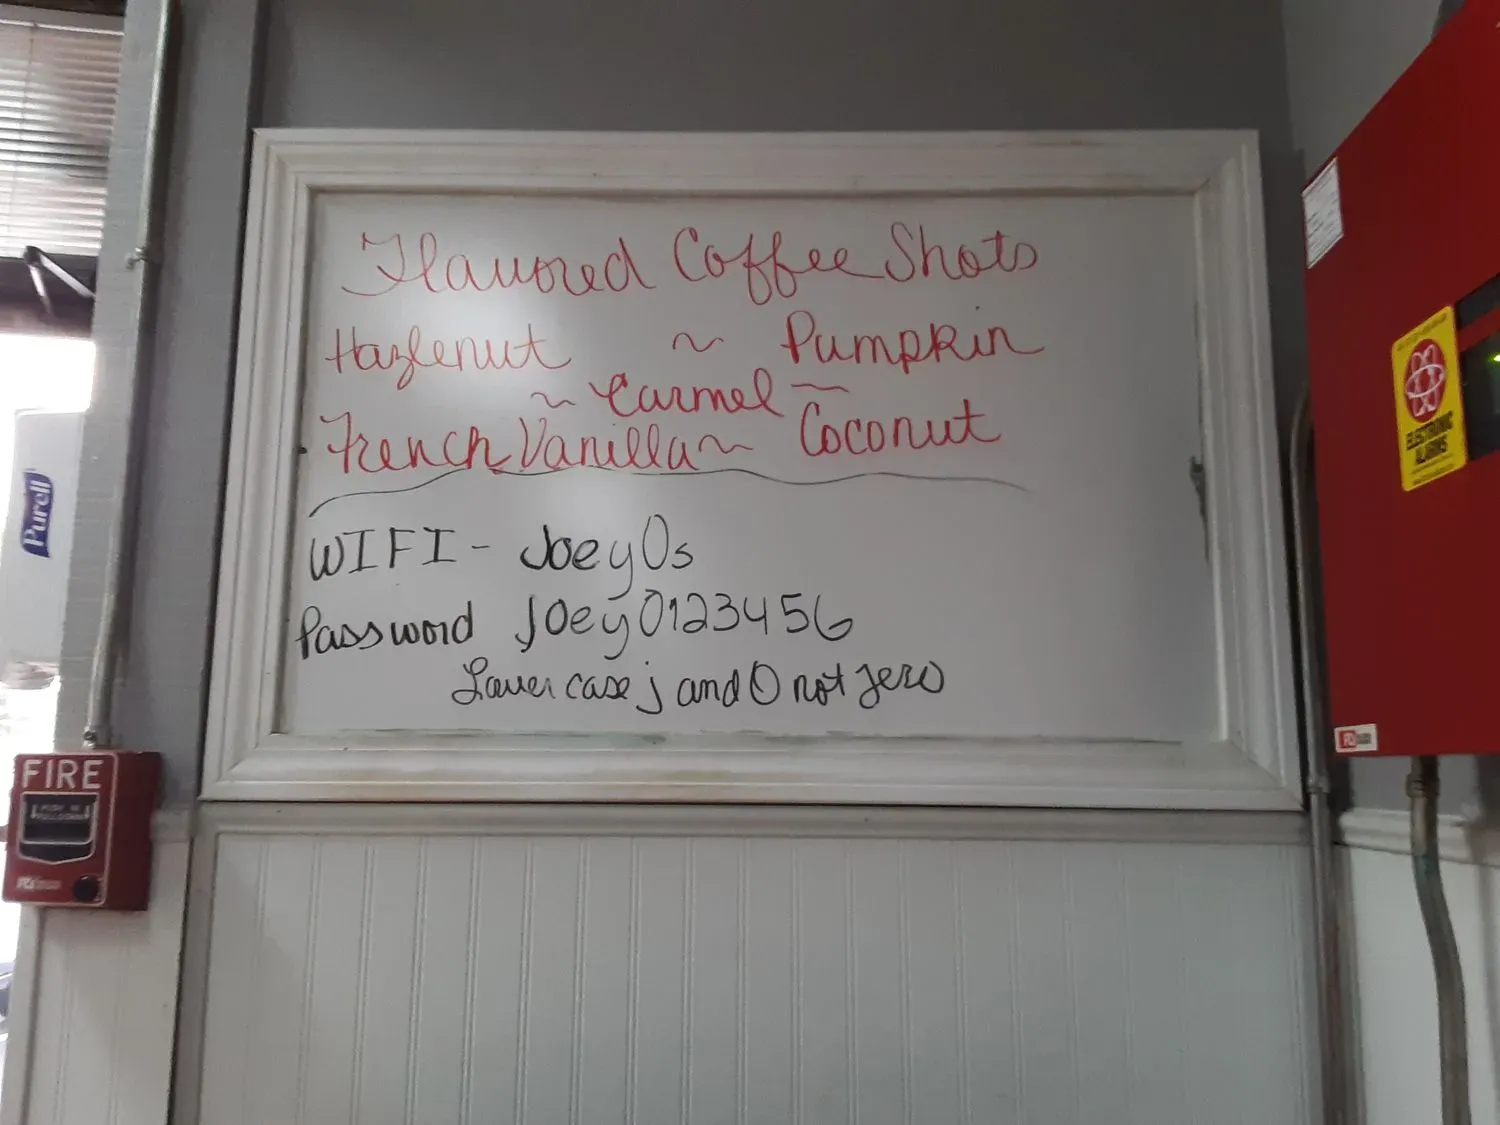 Flavored Coffee Shots
Hazlenut ~ Pumpkin
~ Carmel ~
French Vanilla ~ Coconut
WIFI - JoeyOs
Password joeyO123456
Lower case j and O not zero
Purell
FIRE
ELECTRONIC
ALARMS